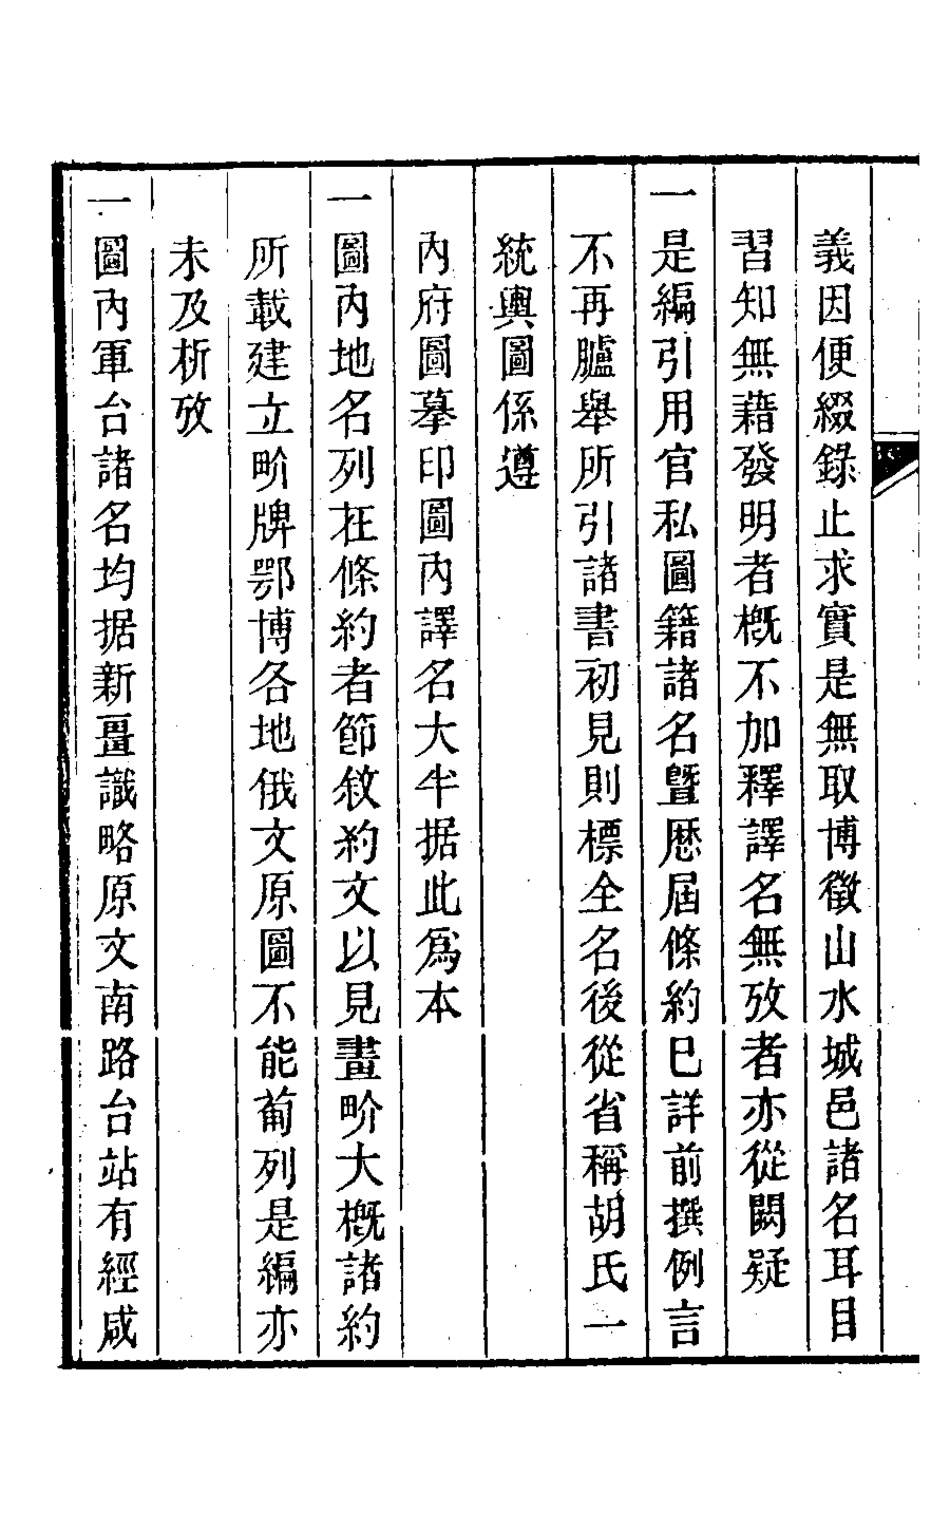 義因便綴錄止求實是無取博徵山水城邑諸名耳目
習知無藉發明者概不加釋譯名無攷者亦從闕疑
一是編引用官私圖籍諸名暨歷屆條約已詳前撰例言
不再臚舉所引諸書初見則標全名後從省稱胡氏一
統輿圖係遵
內府圖摹印圖內譯名大半据此爲本
一圖內地名列在條約者節敘約文以見畫畍大概諸約
所載建立畍牌鄂博各地俄文原圖不能葡列是編亦
未及析攷
一圖內軍台諸名均据新畺識略原文南路台站有經咸